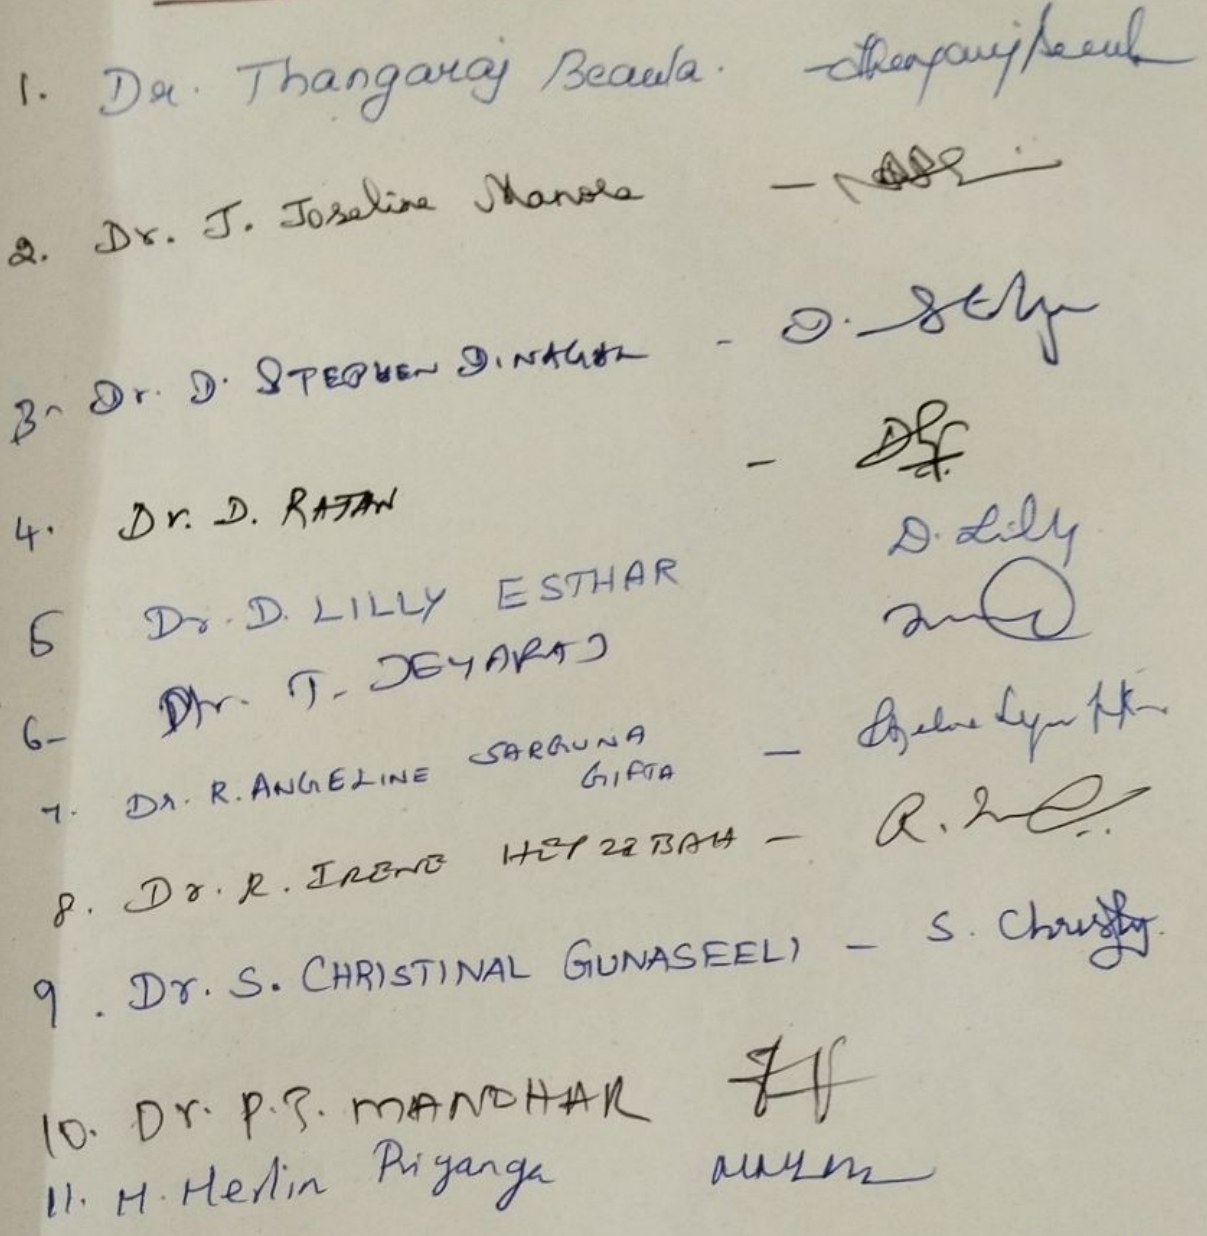 1. Dr. Thangaraj Beaula. - Thangaraj Beaula
2. Dr. J. Joseline Manora -
3- Dr. D. STEPHEN DINAGAR - D. Stephen
4. Dr. D. RAJAN -
5 Dr. D. LILLY ESTHAR D. Lilly
6- Dr. T. JEYARAJ
7. Dr. R. ANGELINE SARGUNA -
GIFTA
8. Dr. R. IRENE HEPZEBAH - R.
9. Dr. S. CHRISTINAL GUNASEELI - S. Christy
10. Dr. P.S. MANOHAR
11. H. Herlin Priyanga